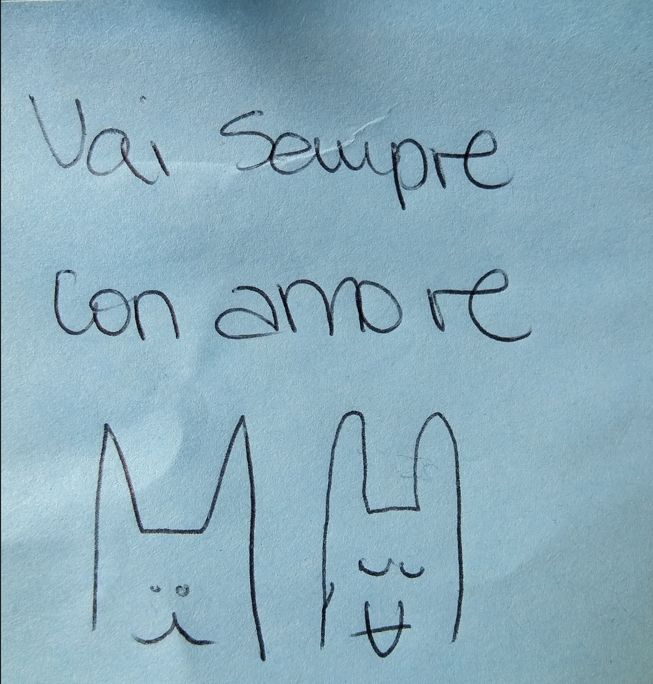 Vai Sempre
con amore